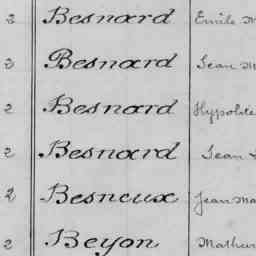 2 Besnard Emile M
2 Besnard Jean M
2 Besnard Hypolite
2 Besnard Jean
2 Besneux Jean Ma
2 Beyon Mathur